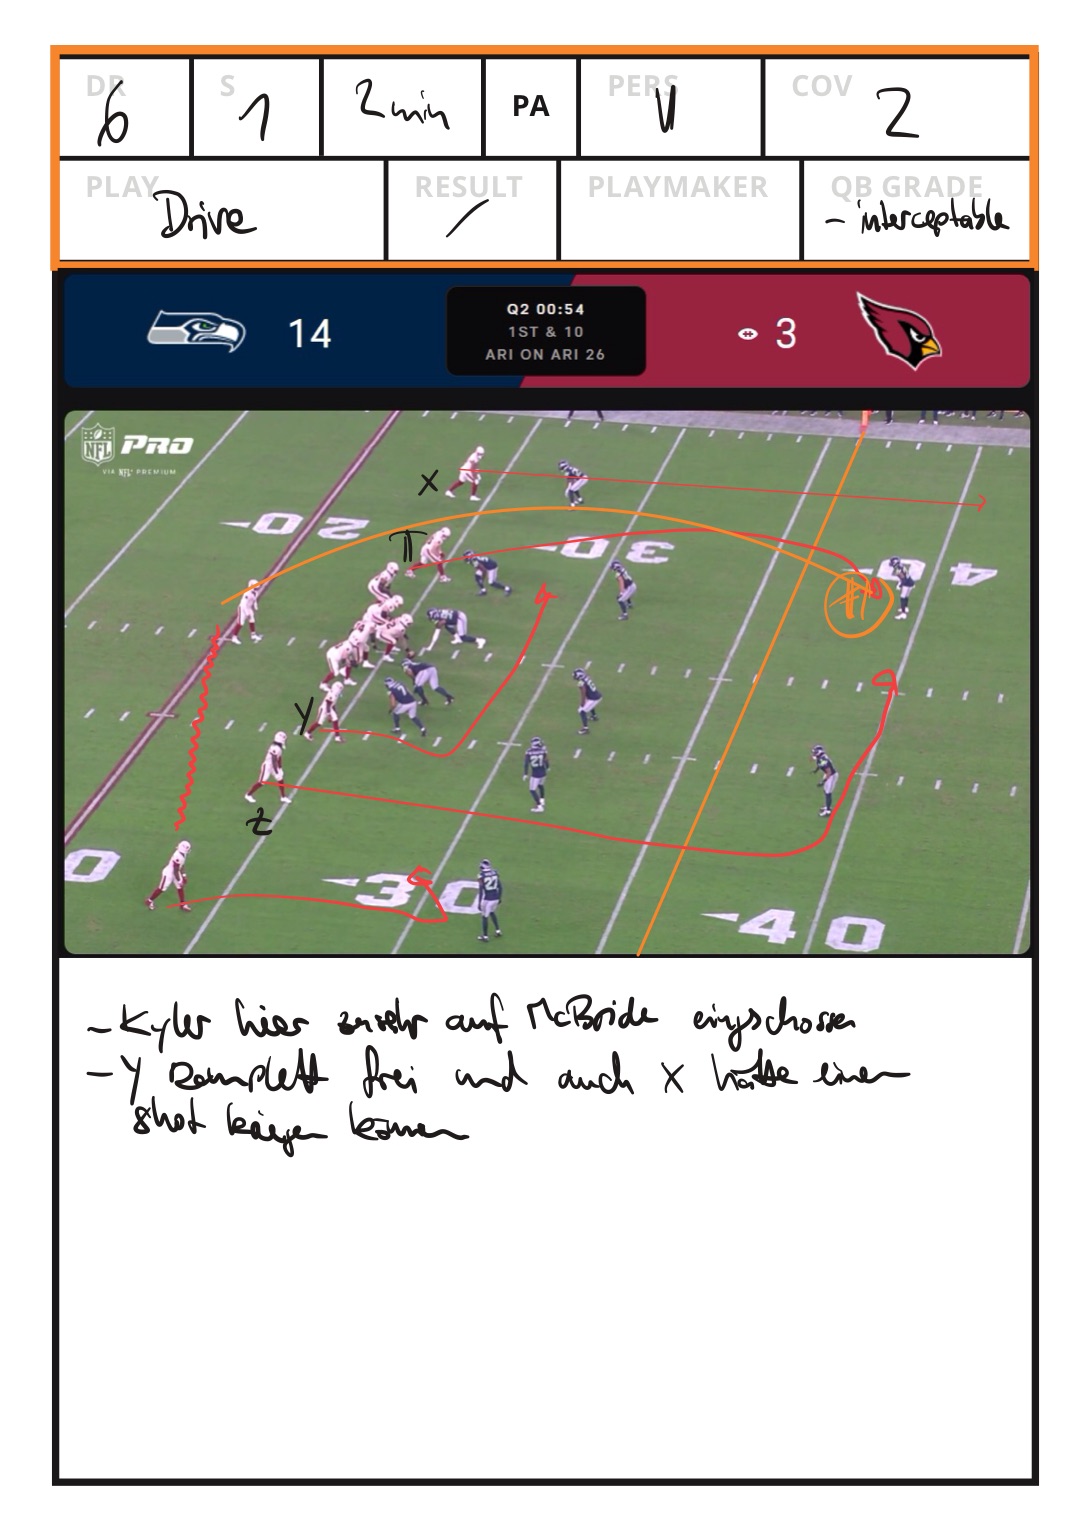 DR S PERS COV
6 1 2 min PA 2
PLAY RESULT PLAYMAKER QB GRADE
Drive / - interceptable
14
Q2 00:54
1ST & 10
ARI ON ARI 26
3
NFL PRO
VIA NFL+ PREMIUM
X
20
30
40
Y
21
Z
0
30
27
40
- Kyler hier zu sehr auf McBride eingschossen
- Y komplett frei und auch X hätte einen
shot kriegen können